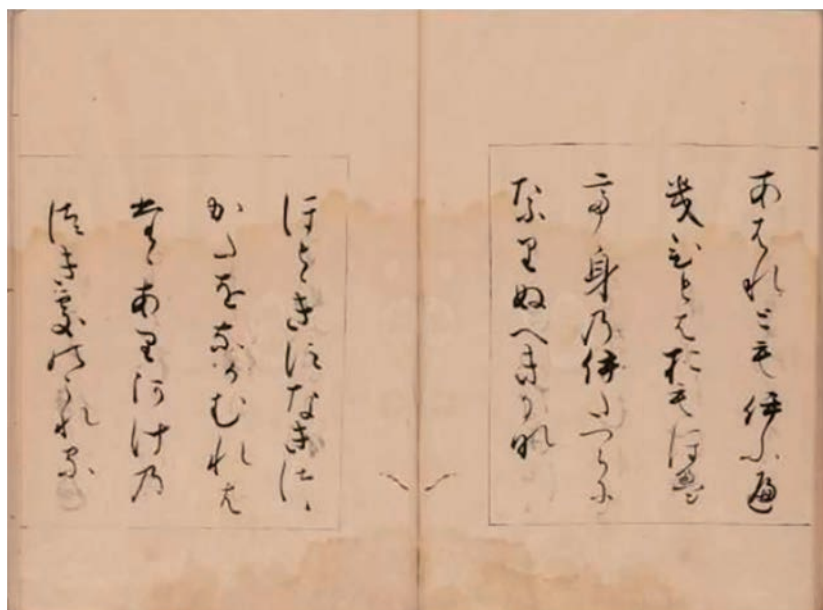 あはれともいふへ
きひとはおもほえ
て身のいたつらに
なりぬへきかな
ほとゝきすなきつる
かたをなかむれは
たゝありあけの
つきそのこれる